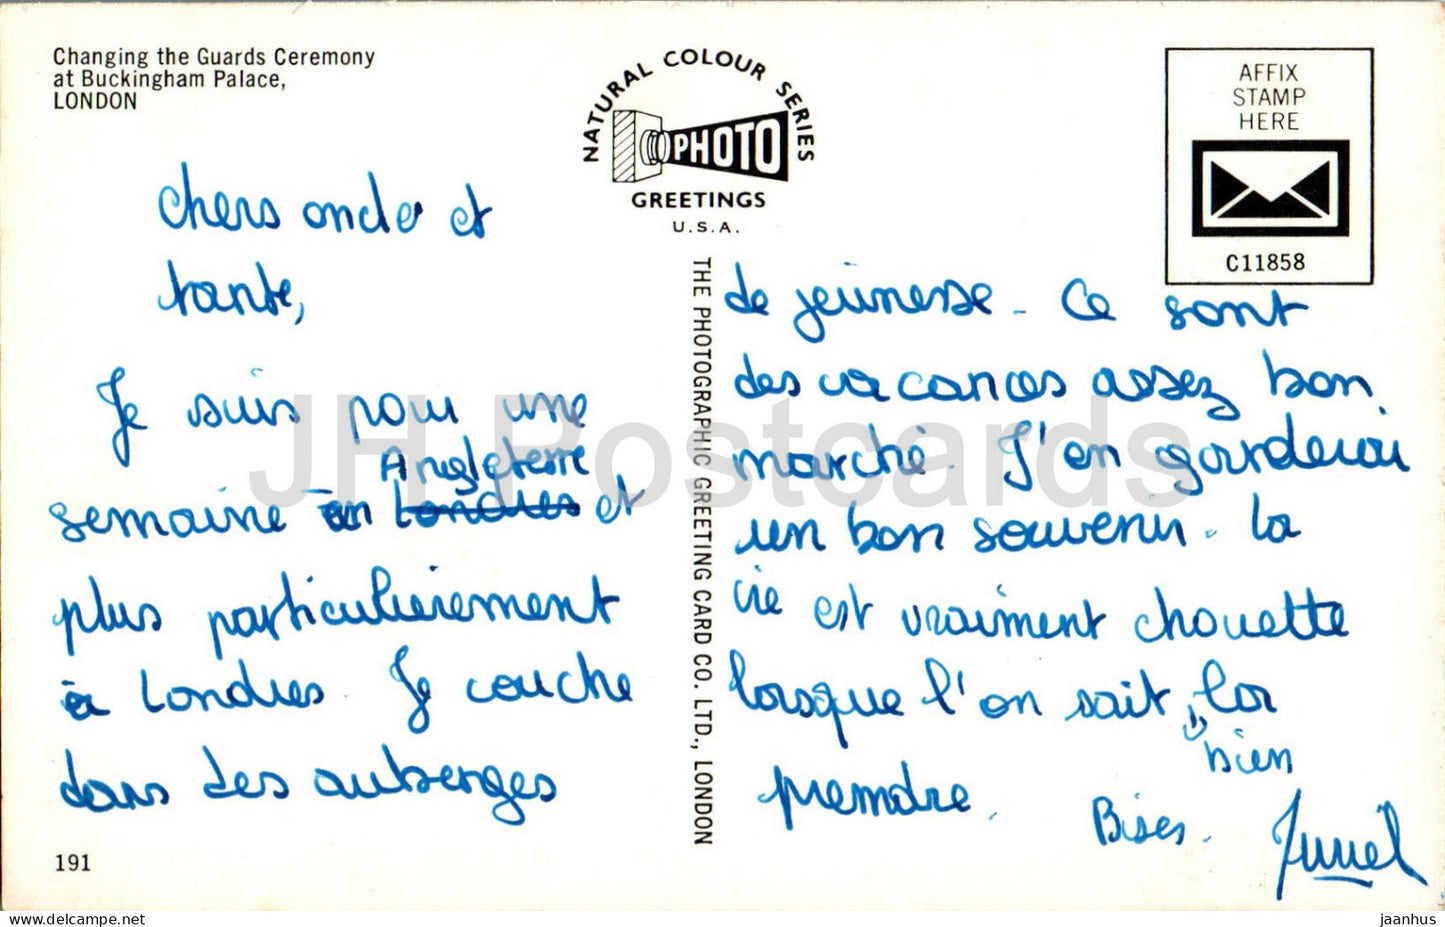 Changing the Guards Ceremony
at Buckingham Palace,
LONDON
NATURAL COLOUR SERIES
PHOTO
GREETINGS
U.S.A.
AFFIX
STAMP
HERE
C11858
chers oncle et
tante,
Je suis pour une
Angleterre
semaine en Londres et
plus particulièrement
à Londres. Je couche
dans des auberges
191
THE PHOTOGRAPHIC GREETING CARD CO. LTD., LONDON
de jeunesse - Ce sont
des vacances assez bon
marché. J'en garderai
un bon souvenir. La
vie est vraiment chouette
lorsque l'on sait, la
bien
prendre.
Bises.
JH Postcards
jaanhus